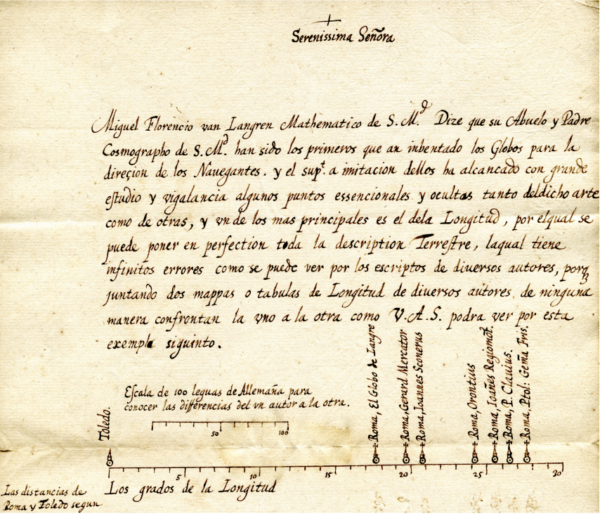 Serenissima Señora
Miguel Florencio van Langren Mathematico de S. M.ᵈ Dize que su Abuelo y Padre
Cosmographo de S. M.ᵈ han sido los primeros que an inbentado los Globos para la
direçion de los Nauegantes. y el sup.ᵗ a imitacion dellos ha alcancado con grande
estudio y vigalancia algunos puntos essencionales y ocultos tanto deldicho arte
como de otras, y vn de los mas principales es el dela Longitud, por elqual se
puede poner en perfection toda la description Terrestre, laqual tiene
infinitos errores como se puede ver por los escriptos de diversos autores, porq
juntando dos mappas o tabulas de Longitud de diversos autores de ninguna
manera confrontan la vno a la otra como V. A. S. podra ver por esta
exemple siguinto.
Escala de 100 leguas de Allemaña para
conocer las differencies del vn autor a la otra.
50 100
Toledo.
Roma, El Globo de Langre
Roma, Gerard Mercator
Roma, Ioannes Sconerus
Roma, Orontius
Roma, Ioañes Regiomõt.
Roma, P. Clauius.
Roma, Ptol: Gēma Fris.
5 10 15 20 25 20
Las distancias de
Roma y Toledo segun
Los grados de la Longitud